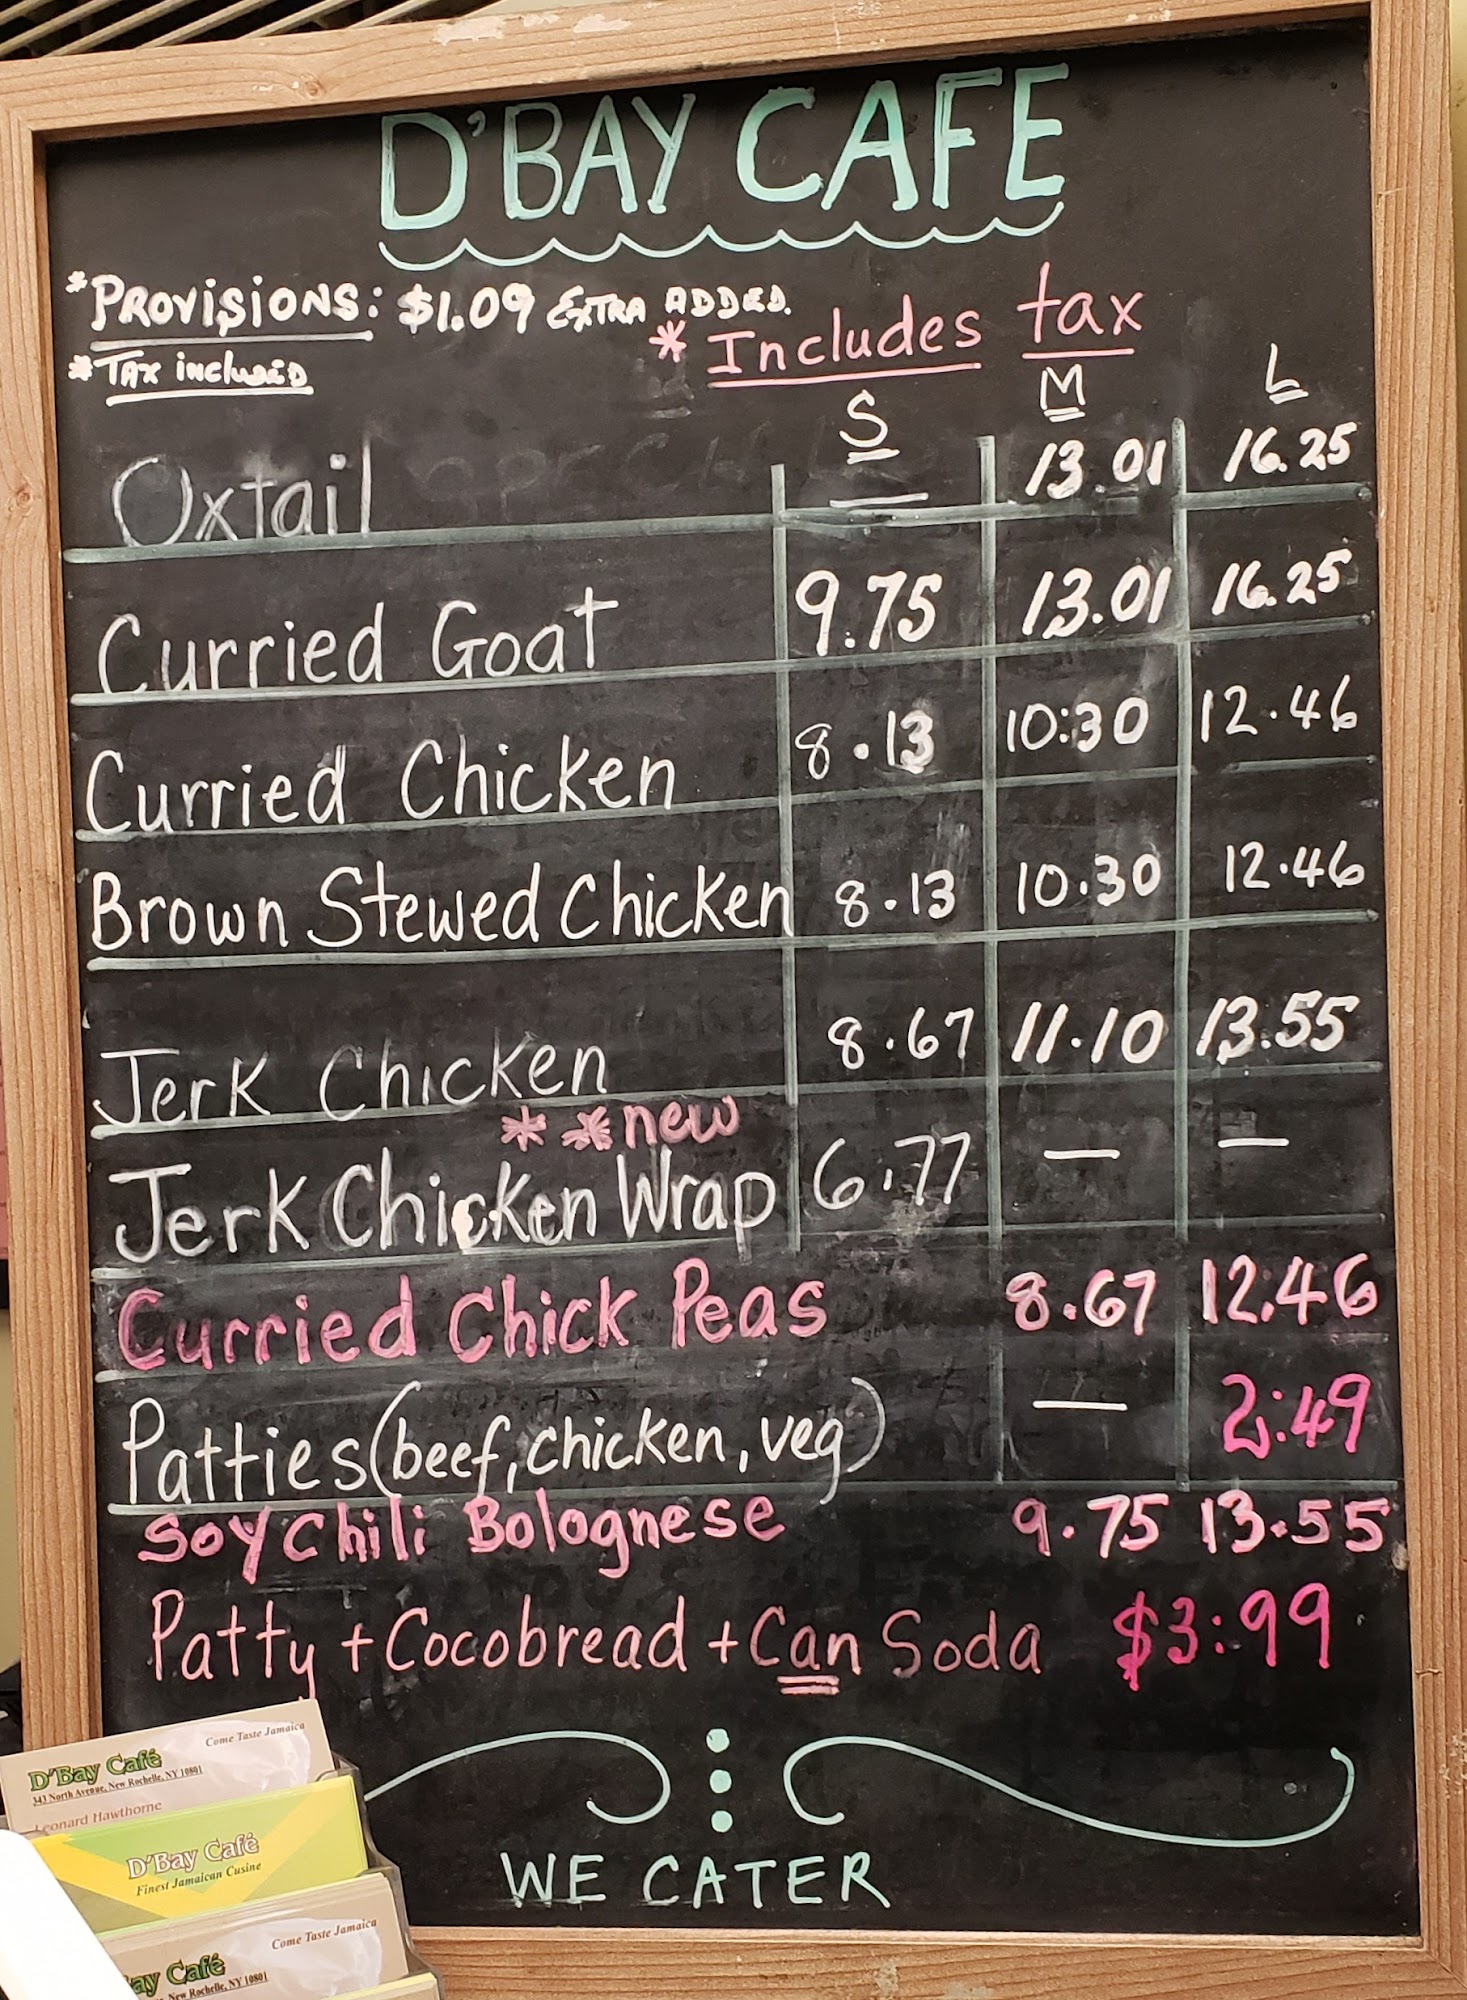 D'BAY CAFE
*PROVISIONS: $1.09 EXTRA ADDED.
*TAX INCLUDED
* Includes tax
S M L
Oxtail — 13.01 16.25
Curried Goat 9.75 13.01 16.25
Curried Chicken 8.13 10:30 12.46
Brown Stewed Chicken 8.13 10.30 12.46
Jerk Chicken 8.67 11.10 13.55
* * new
Jerk Chicken Wrap 6.77 — —
Curried Chick Peas 8.67 12.46
Patties (beef, chicken, veg) — 2:49
Soy Chili Bolognese 9.75 13.55
Patty + Cocobread + Can Soda $3:99
WE CATER
Come Taste Jamaica
D'Bay Café
343 North Avenue, New Rochelle, NY 10801
Leonard Hawthorne
D'Bay Café
Finest Jamaican Cusine
Come Taste Jamaica
ay Café
New Rochelle, NY 10801